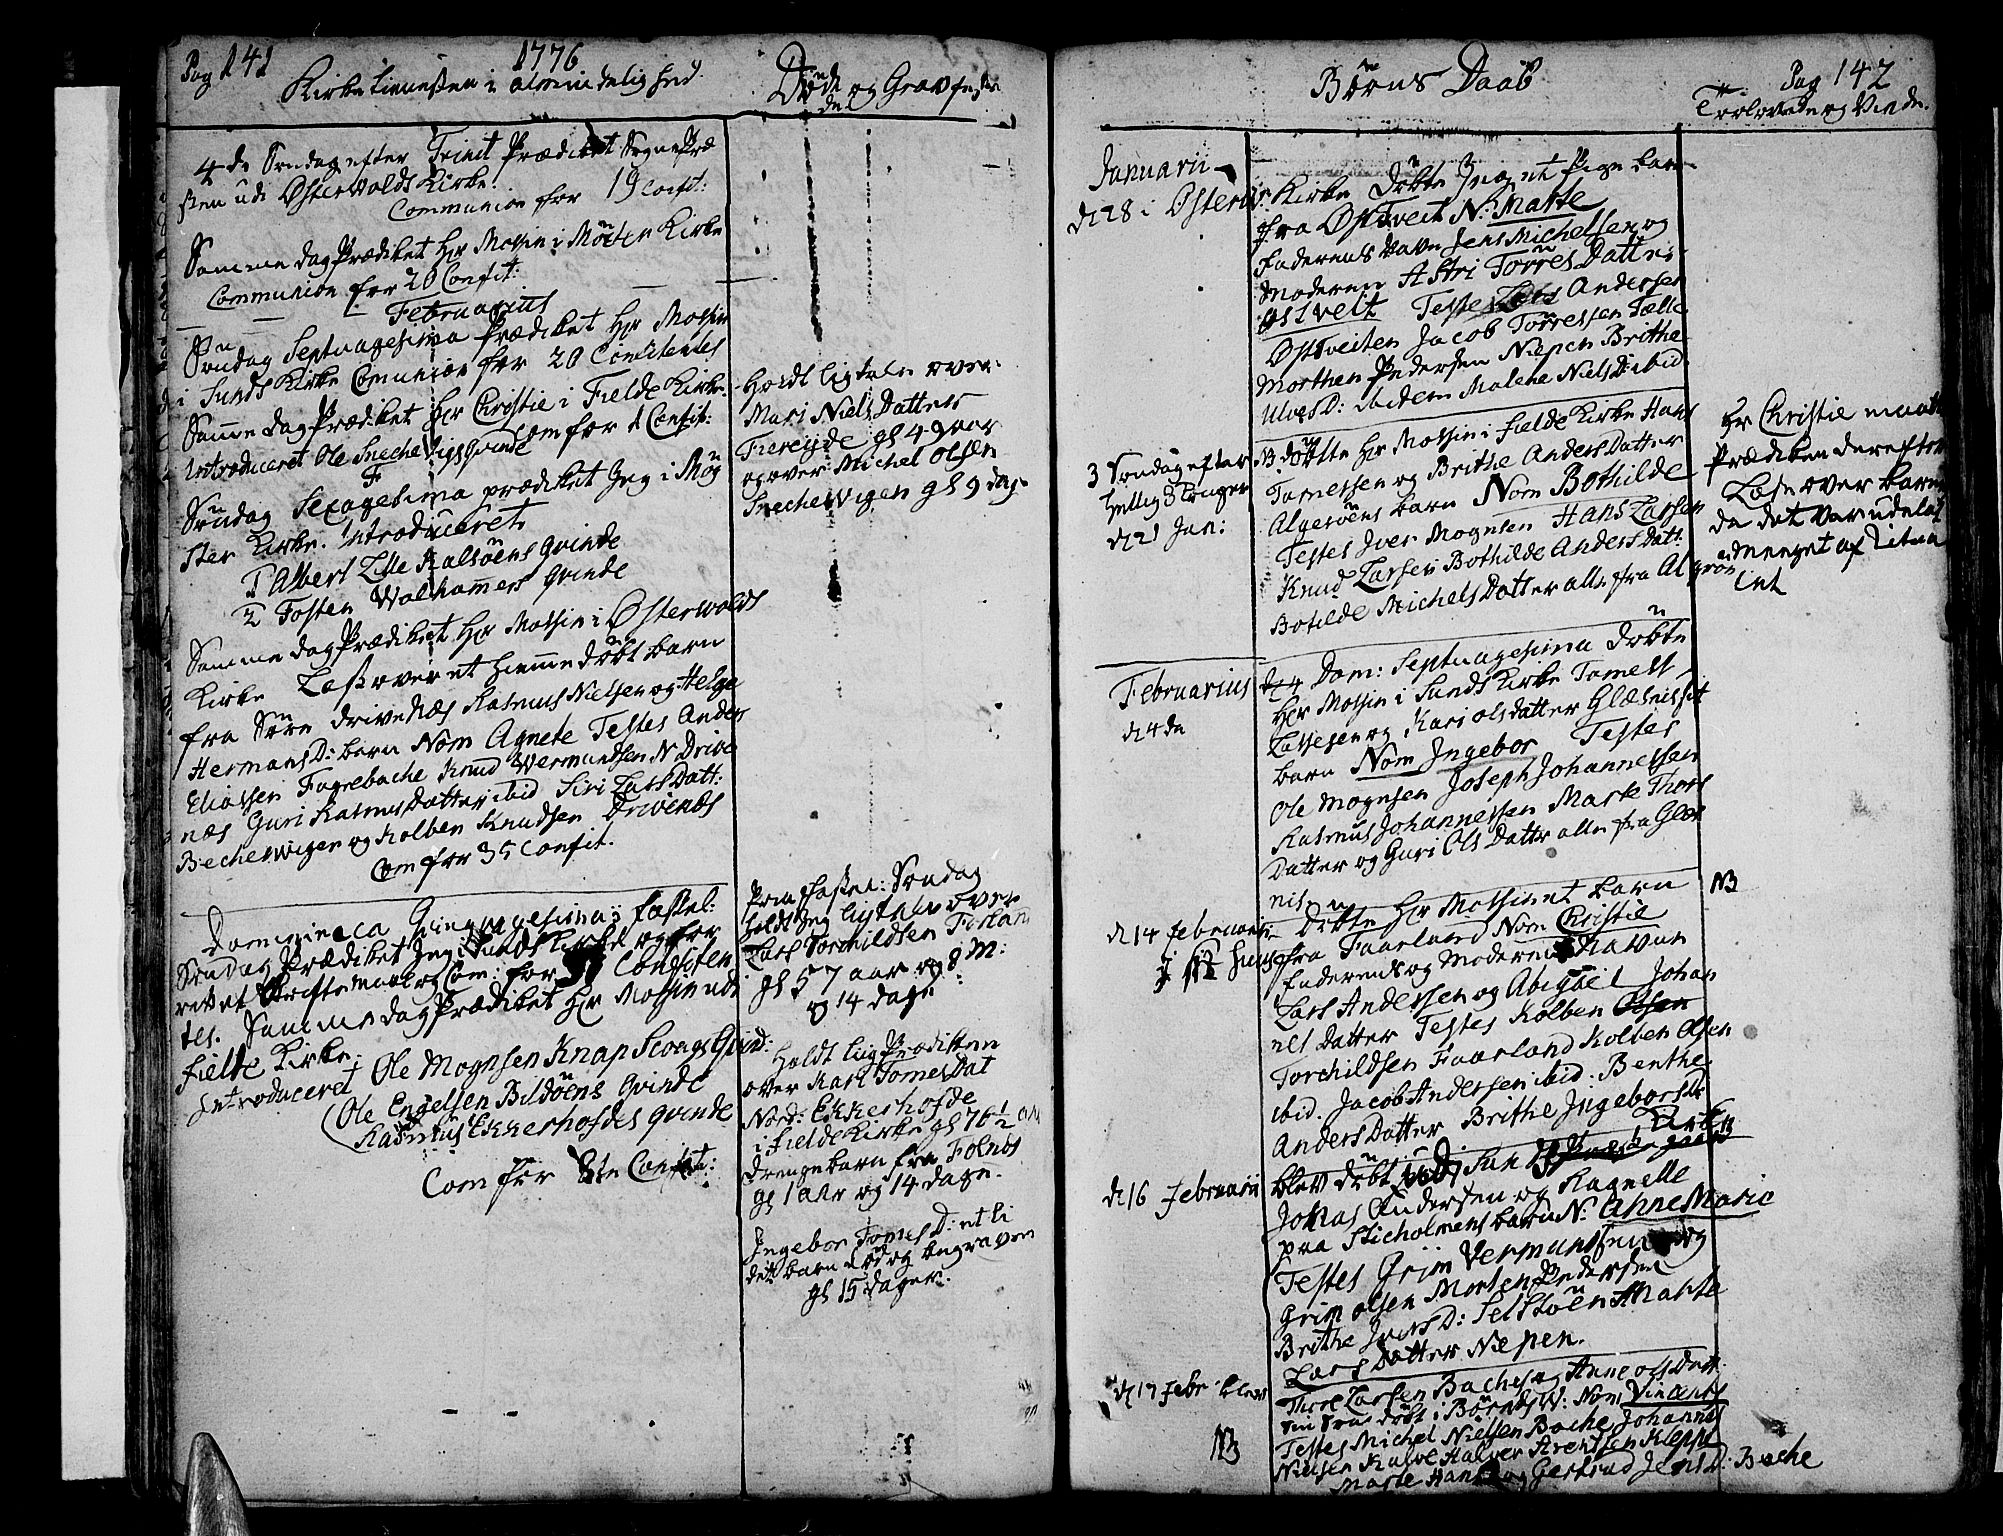 Pag 141
1776
Kirke tienesten i almindelighed.
Døde og Gravfeste
4de Søndag efter Trinit Prædiket Sogne Præ
sten udi Østerwolds Kirke.
Communion for 19 Confit:
Samme dag Prædiket Hr Mossin i Møster Kirke
Communion for 20 Confit:
Februarius
Søndag Septuagesima Prædiket Hr Mossin
i Sunds Kirke Comunion for 20 Confitentes
Samme dag Prædiket Hr Christie i Fielde Kirke
Introduceret Ole Snechevigs Qvinde Com for Confit:
Søndag Sexagesima prædiket Jeg i Møg
ster Kirke. Introduceret
1 Albert Lille Kalsøens qvinde
2 Tosten Walhammers qvinde
Samme dag Prædiket Hr Mossin i Østerwolds
Kirke Læst over et hiemmedøbt barn
fra Søre Drivenæs Rasmus Nielsen og Helge
Hermans D: barn Nom Agnete Testes Anders
Eliassen Fagrebache Knud Wermundsen N Drive
næs Guri Rasmus Datter ibid Siri Lars Datt:
Bechervigen og Kolben Knudsen Drivenæs
Com for 35 Confit.
Dominica Qvinqvagesima: fastel:
Søndag Prædiket Jeg i Sunds Kirke og for
rettet Skriftemaal og Com: for Confiten
tes. Samme dag Prædiket Hr Mossin udi
Fielde Kirke.
Introduceret Ole Mognsen Knapscoags Qvind:
Ole Engelsen Bildøens qvinde
Rasmus Ekkerhofdes qvinde
Com for Confit:
Holdt ligtale over
Mari Niels Datter
Trereide gl 49 aar
og over Michel Olsen
Snechevigen gl 9 dage
Søndag
holdt Jeg ligtale over
Lars Torchildsen Forland
gl 57 aar og 8 M:
og 14 dage
Holdt ligprædiken
over Kari Tomes Dat
Nord: Ekkerhofde
i Fielde Kirke gl 76 1/2 aar
Drengebarn fra Folnes
gl 1 Aar og 14 dage.
Ingebor Tomes D: et li
det barn død og begraven
gl 15 dager.
Børns Daab
Pag 142
Trolovede og Viede.
Januarii
d 28 i Østerw: Kirke Døbte Jeg et Pige barn
fra Østtveit N: Matte
Faderens Navn Jens Michelsen og
Moderen Astri Torres Datter
Østveit Testes Lars Andersen
Østtveiten Jacob Torressen Tælle
Morthen Pedersen Nepen Brithe
Ulves D: ibidem Malene Niels D ibid
3 Søndag efter
Hellig 3 Konger
d 21 Jan:
NB døbte Hr Mossin i Fielde Kirke Hans
Tomessen og Brithe Anders Datter
Algerøens barn Nom Bothilde
Testes Iver Mognsen Hans Larsen
Knud Larsen Bothilde Anders Datt
Botilde Michels Datter alle fra Algrøen
Hr Christie maatte
Prædiken derefter
Læse over barnet
da det var udelat
meeget af Ritua
let
Februarius
d 4de
Dom: Septuagesima Døbte
Hr Mossin i Sunds Kirke Tomes
Lassesen og Kari Olsdatter Glæsnisset
barn Nom Ingebor Testes
Ole Mognsen Joseph Johannessen
Rasmus Johannessen Marte Thors
Datter og Guri Ols Datter alle fra Glæs
nis
d 14 Februarii
Døbte Hr Mossin et barn NB
fra Faarland Nom Christie
Faderens og Moderens Navn
Lars Andersen og Abigael Johan
nes Datter Testes Kolben
Torchildsen Faarland Kolben Olsen
ibid. Jacob Andersen ibid: Benthe
Anders Datter Brithe Ingebors Dr
d 16 Februarii
blev døbt
Jonas Andersen og Ragnelle
fra Sticholmens barn N: Anne Marie
Testes Grim Vermundsen og
Grim Olsen Morten Pedersen
Brithe Ivers D: Selstøen Marte
Lars Datter Nepen.
d 17 Febr blev
NB
Thore Larsen Bache og Anne Ols Datt
Nom Vincents
Testes Michel Nielsen Bache Johannes
Nielsen Kalve Halver Arentsen Kleppe
Marte Hans og Gertrud Jens D. Bache